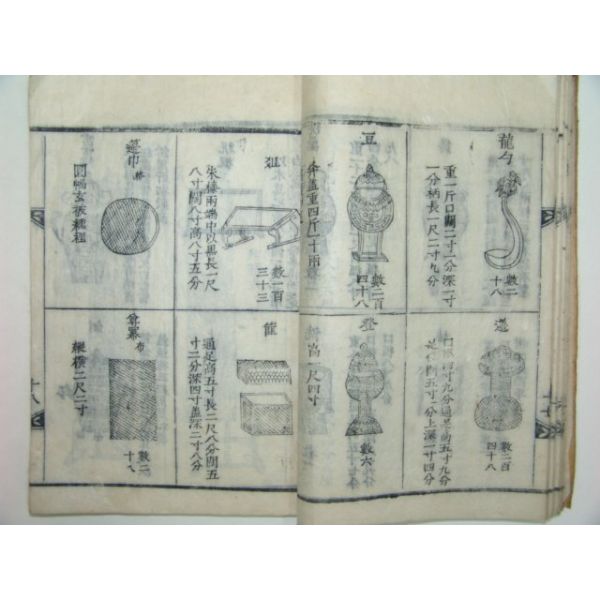 龍勺
重一斤口闊二寸一分深一寸
一分柄長一尺二寸九分
數二
十八
豆
幷盖重四斤一十兩
數二百
四十八
籩
口徑四寸九分通足高五寸九分
足闊五寸一分上深一寸四分
數二百
四十八
登
高一尺四寸
數六
俎
朱漆兩端中以黒長一尺
八寸闊八寸高八寸五分
數一百
三十三
篚
通足高五寸長二尺八分闊五
寸二分深四寸盖深二寸八分
籩巾 絺
圓幅玄被纁裡
尊冪 布
縱橫二尺二寸
數二
十八
十八